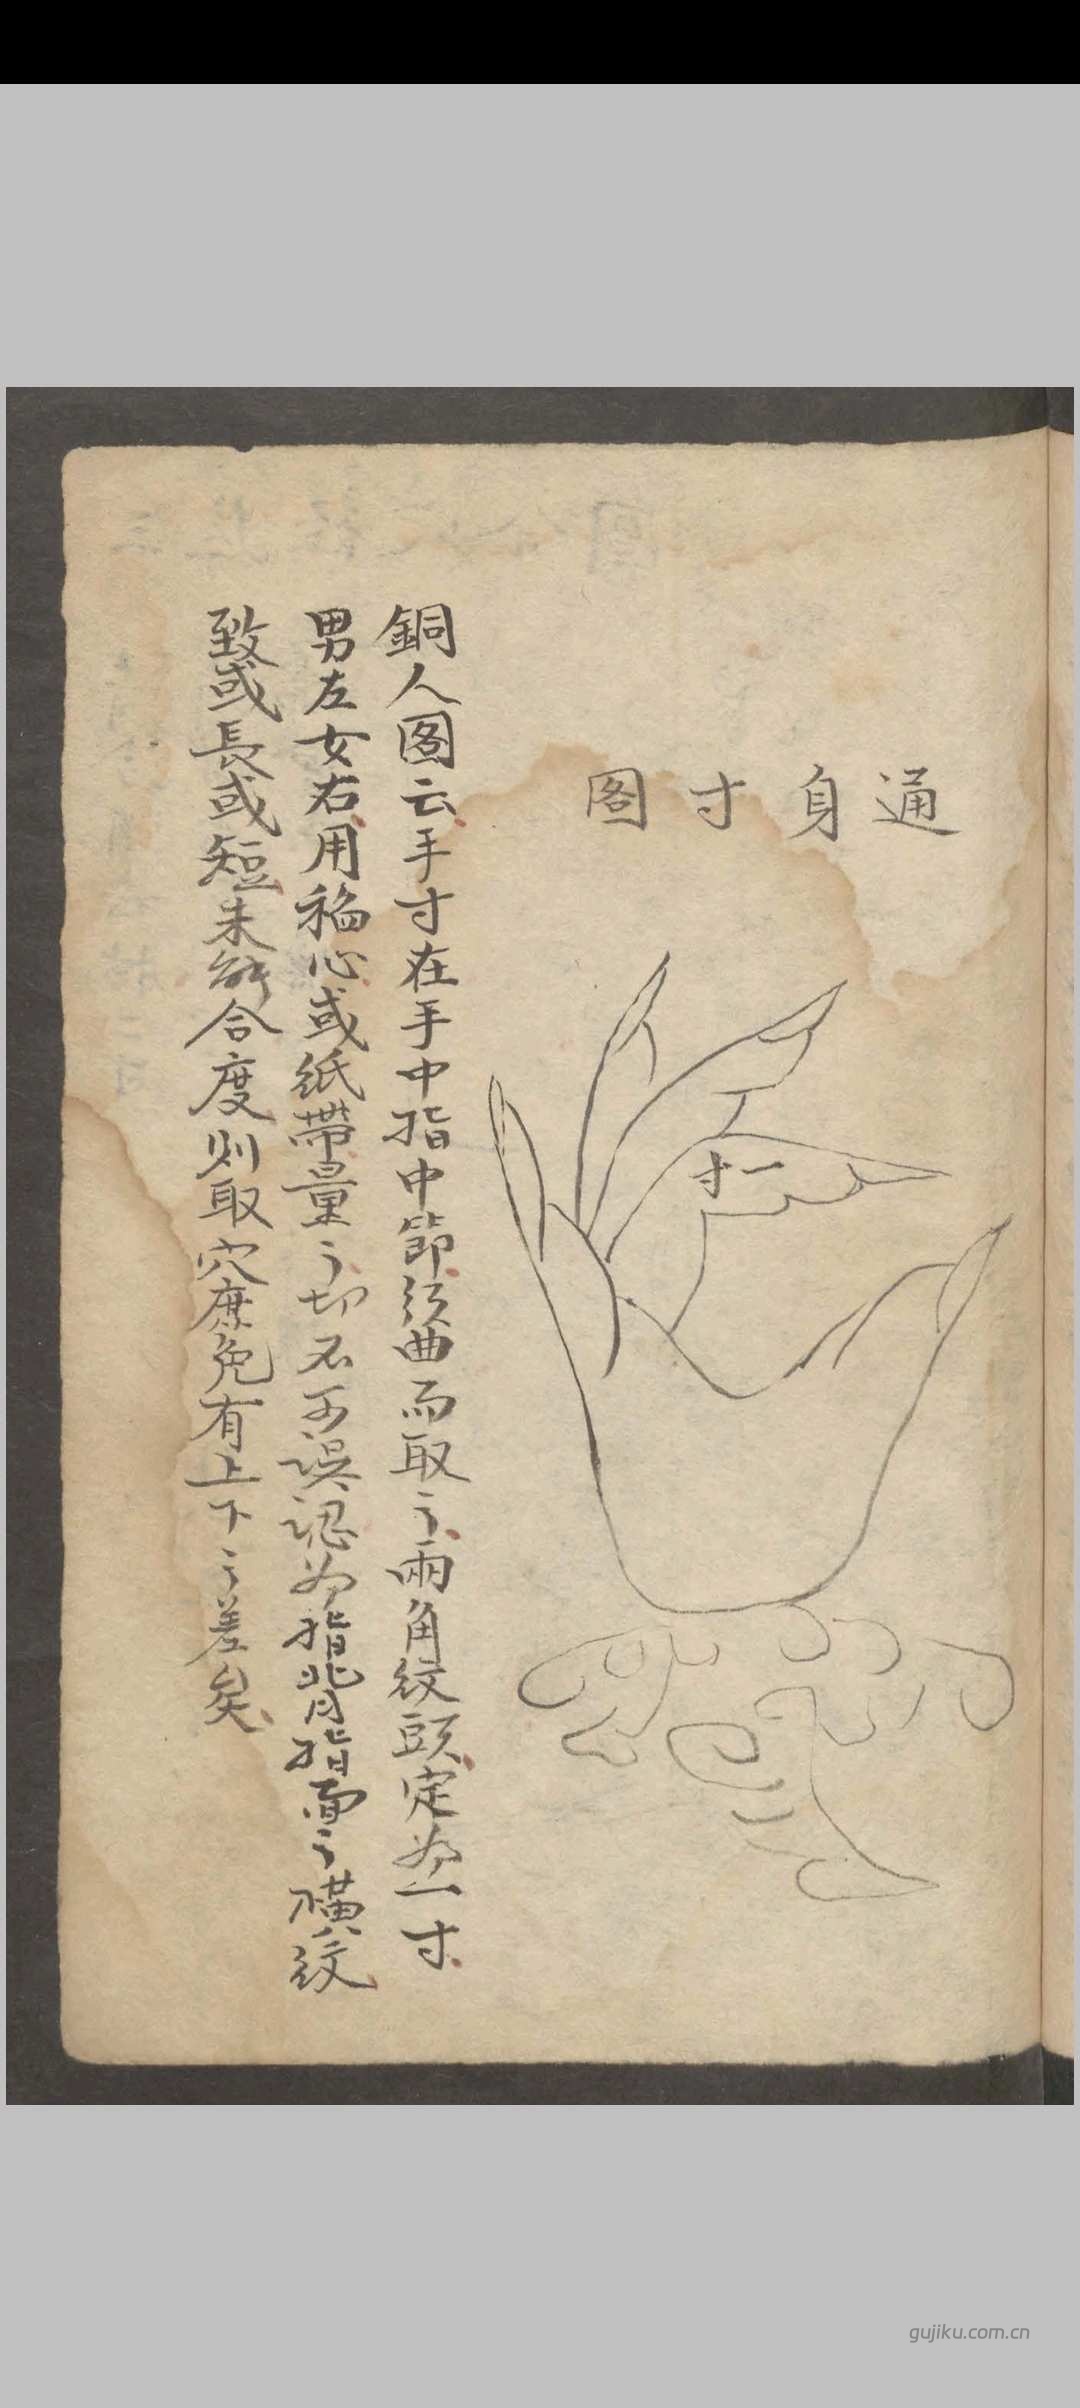 通身寸图
一寸
銅人图云手寸在手中指中節须曲而取之兩角紋頭定为一寸
男左女右用稻心或紙帶量之切不可误認为指背指面之横紋
致或長或短未能合度则取穴庶免有上下之差矣
gujiku.com.cn